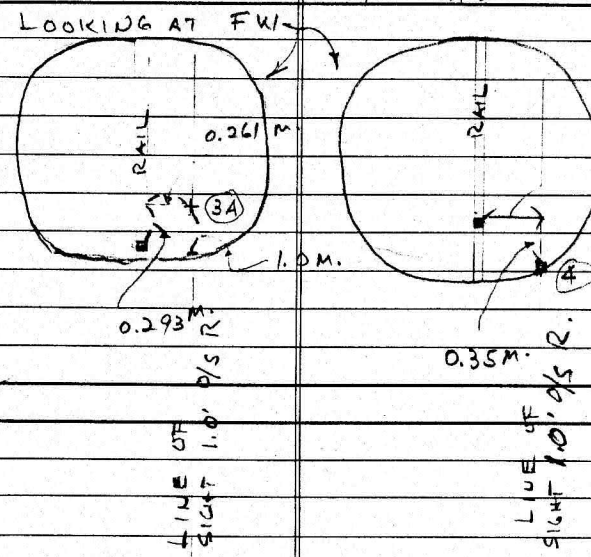 LOOKING AT FW
RAIL
0.261 M
3A
1.0 M.
0.293 M.
LINE OF
SIGHT 1.0' O/S R.
RAIL
4
0.35 M.
LINE OF
SIGHT 1.0' O/S R.